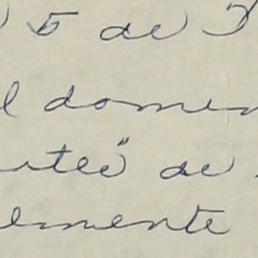 5 de
l domen
uteé" de
lmente